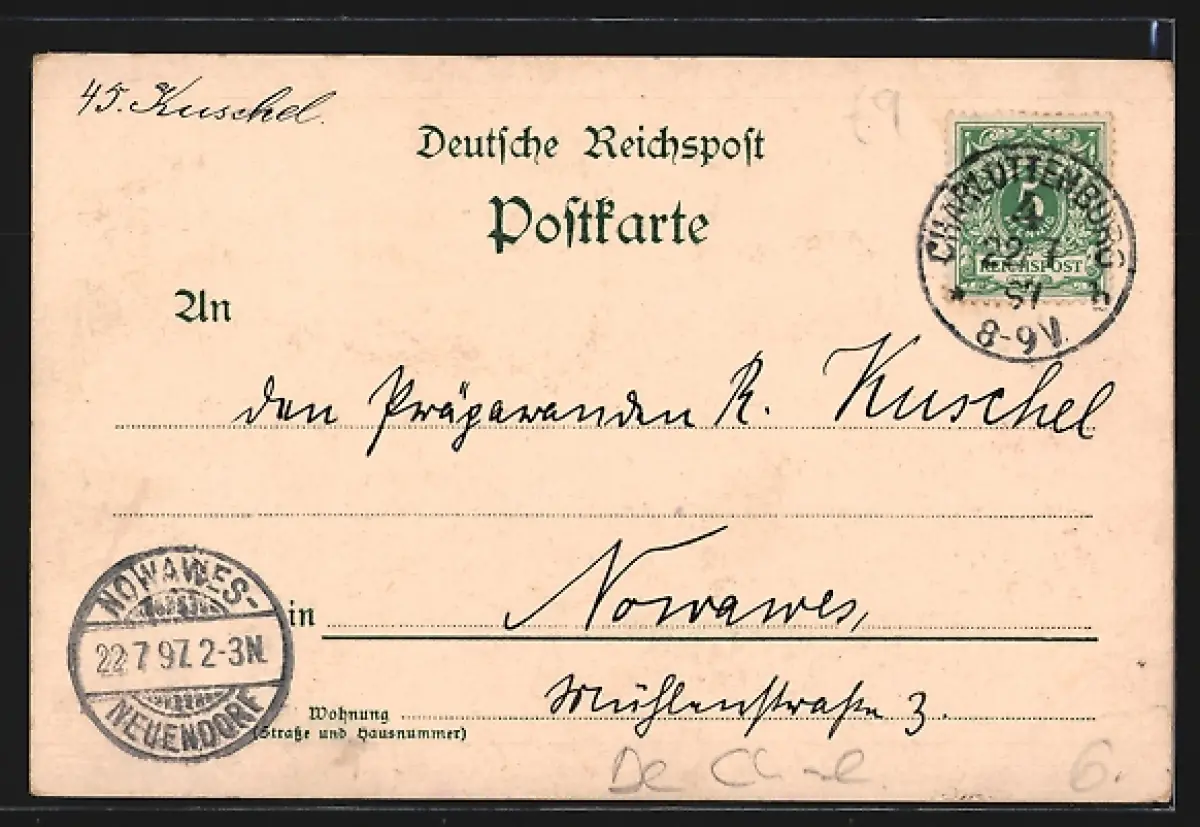 45. Kuschel.
Deutsche Reichspost
Postkarte
5
REICHSPOST
CHARLOTTENBURG
4
22 7
97
8-9V.
An
den Präparanden R. Kuschel
in Nowawes,
NOWAWES-
22.7.97.2-3N.
NEUENDORF
Wohnung
(Straße und Hausnummer)
Mühlenstraße 3.
6.